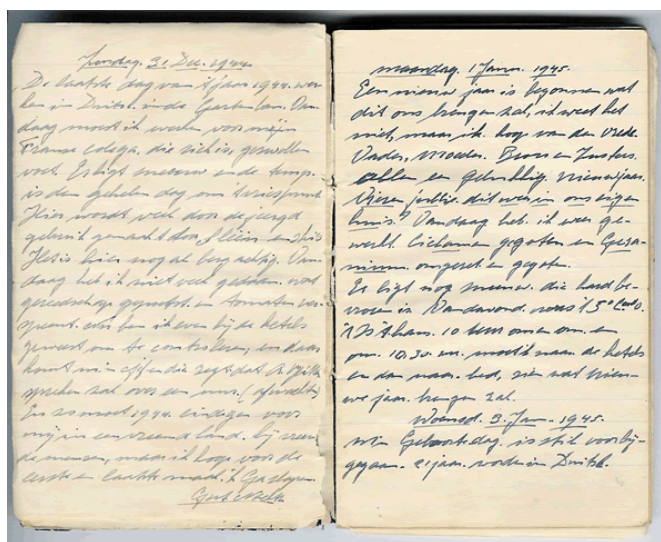 Zondag. 31 Dec. 1944.
De laatste dag van 't jaar 1944. wer-
ken in Duitsl. in de Gärten. Van-
daag moest ik werken voor mijn
Franse colega. die zich in gesneden
voet. Er ligt sneeuw en de temp.
is den gehelen dag om 't vriespunt.
Hier wordt veel door de jeugd
gebruik gemaakt door sleën en skiën
Het is hier nog al bergachtig. Van-
daag heb ik niet veel gedaan. wat
gereedschap gepoetst. en tomaten ver-
speent. ben ik even bij de ketels
geweest om te controleren, en daar
komt mijn die zegt dat
spreken zal over een uur. (afwachten)
En zo moet 1944. eindigen voor
mij in een vreemd land. bij vreem-
de mensen, maar ik hoop voor de
eerste en laatste maal. Ik Ga slapen.
maandag. 1 Janu. 1945.
Een nieuw jaar is begonnen wat
dit ons brengen zal, ik weet het
niet, maar ik. hoop van den Vrede.
Vader, Moeder. Broer en Zusters
allen een gelukkig nieuwjaar.
Vieren jullie dit weer in ons eigen
huis? Vandaag heb. ik weer ge-
werkt. Ciclamen gegoten en Gera-
niums omgezet en gegoten.
Er ligt nog sneeuw. die hard be-
vroren is Vandavond. was 't 5°
't Is thans. 10 uur en om.
om. 10.30. uur. moet ik naar de ketels
en dan naar. bed, zien wat nieu-
we jaar. brengen zal.
Woensd. 3. Jan. 1945.
mijn Geboortedag. is stil voorbij-
gegaan. 21 jaar. worden in Duitsl.